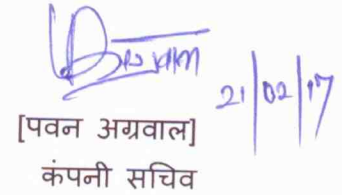 21/02/17
[पवन अग्रवाल]
कंपनी सचिव